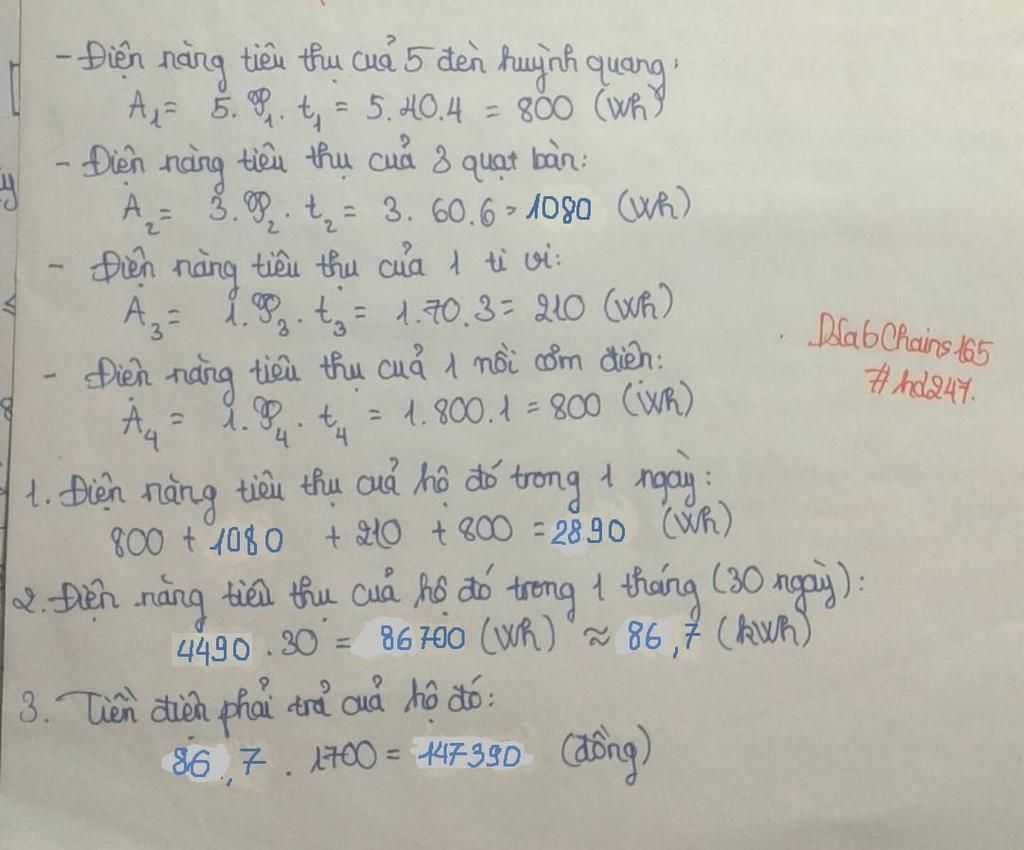 - Điện năng tiêu thụ của 5 đèn huỳnh quang:
A₁ = 5.℘₁. t₁ = 5.40.4 = 800 (Wh)
- Điện năng tiêu thụ của 3 quạt bàn:
A₂ = 3.℘₂. t₂ = 3. 60.6 = 1080 (Wh)
- Điện năng tiêu thụ của 1 ti vi:
A₃ = 1.℘₃. t₃ = 1.70.3 = 210 (Wh)
DiabChains165
- Điện năng tiêu thụ của 1 nồi cơm điện:
#hd247.
A₄ = 1.℘₄. t₄ = 1.800.1 = 800 (Wh)
1. Điện năng tiêu thụ của hộ đó trong 1 ngày:
800 + 1080 + 210 + 800 = 2890 (Wh)
2. Điện năng tiêu thụ của hộ đó trong 1 tháng (30 ngày):
4490 . 30 = 86700 (Wh) ≈ 86,7 (kWh)
3. Tiền điện phải trả của hộ đó:
86,7 . 1700 = 147390 (đồng)